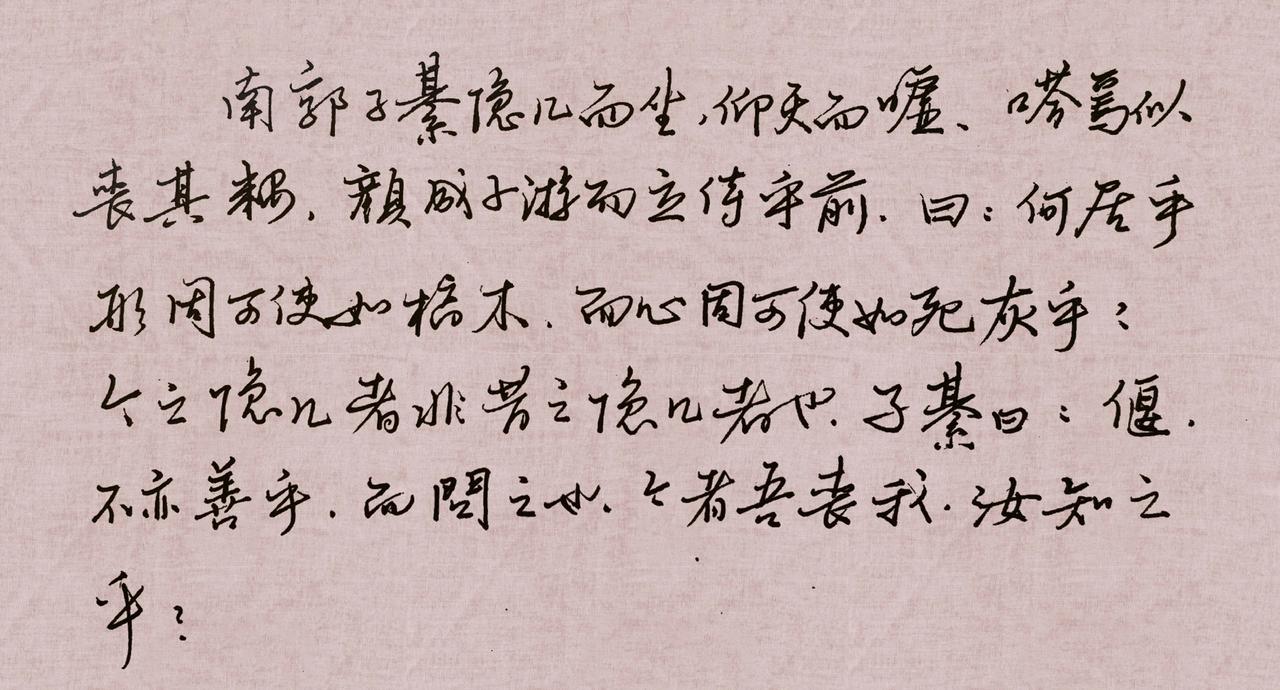 南郭子綦隐几而坐,仰天而嘘、嗒焉似
丧其耦、颜成子游而立侍乎前.曰:何居乎
形固可使如槁木.而心固可使如死灰乎?
今之隐几者非昔之隐几者也.子綦曰:偃.
不亦善乎.而問之也.今者吾丧我.汝知之
乎?